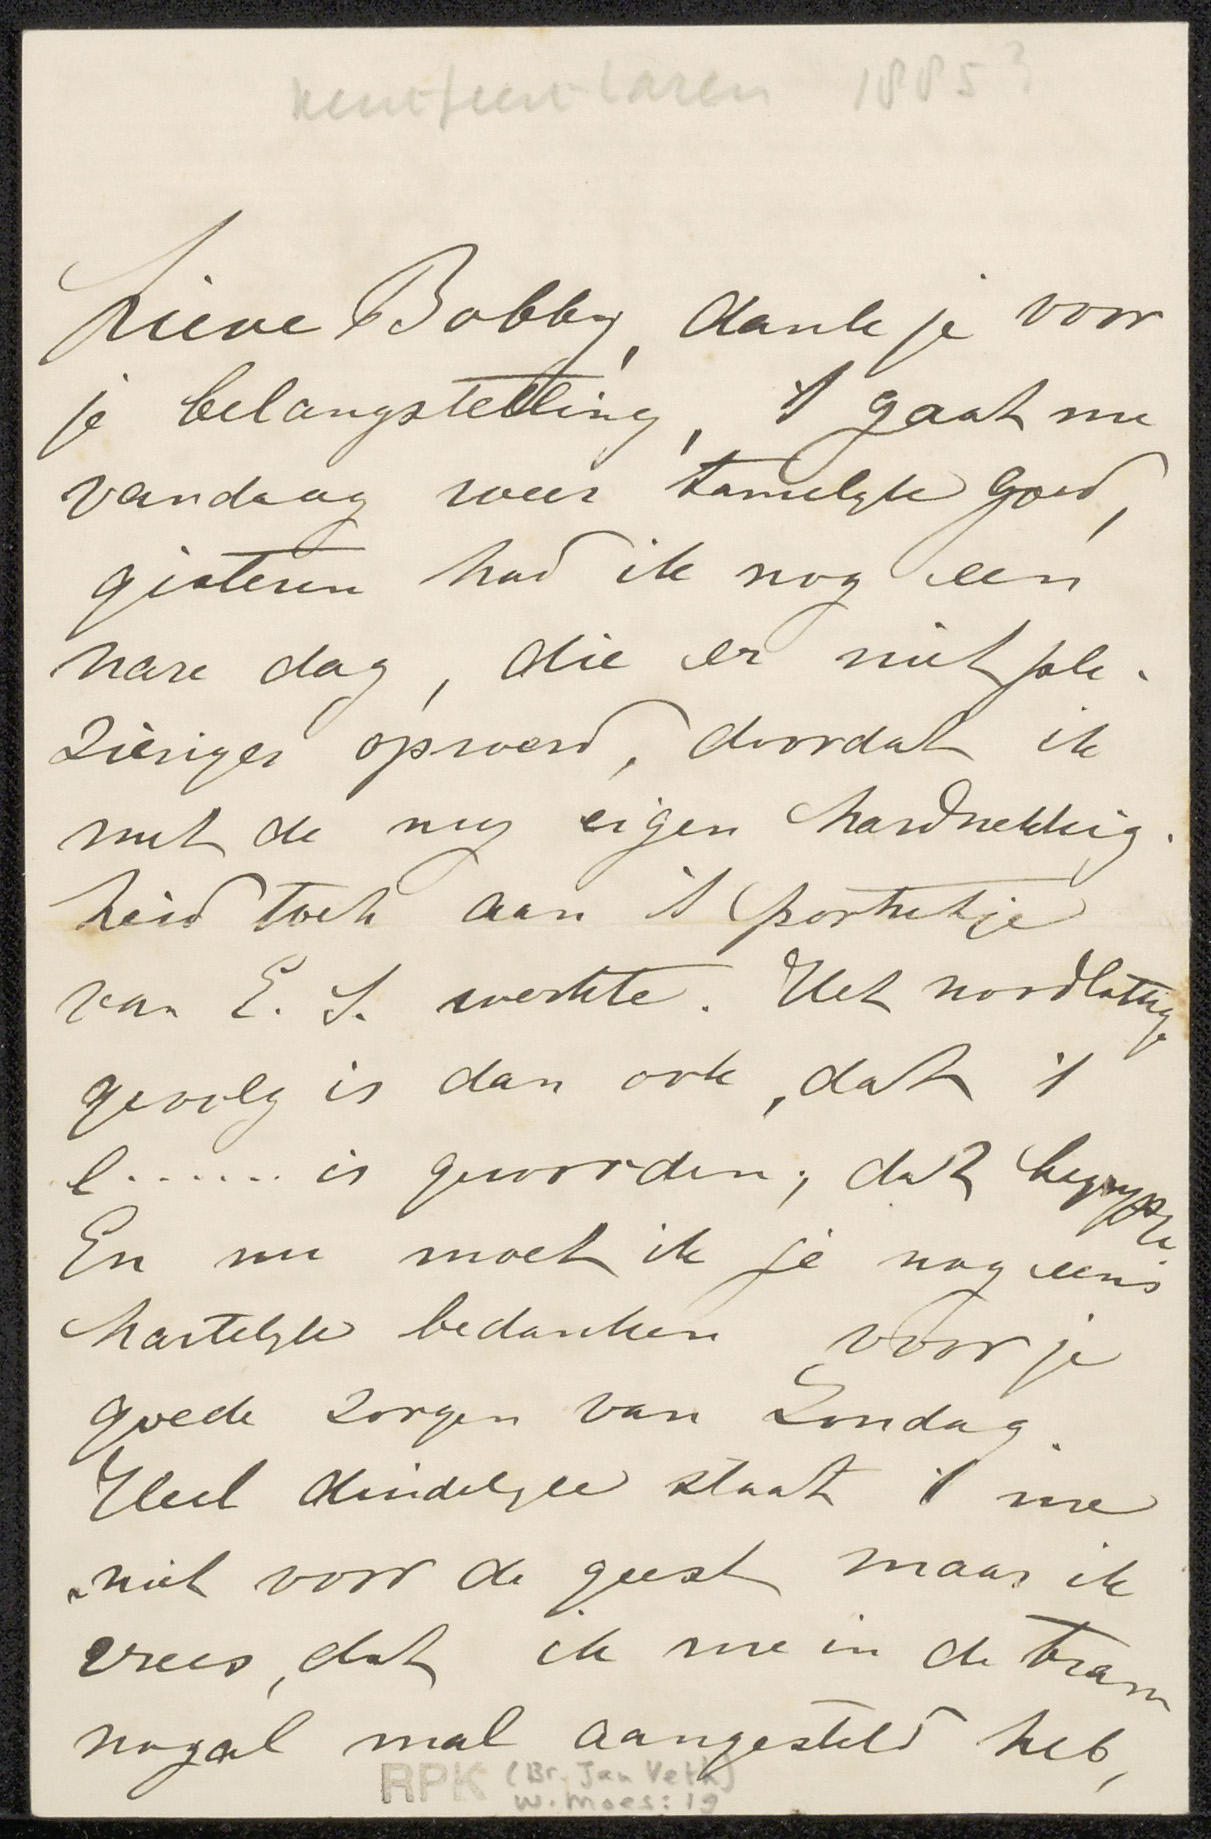 kunstfeest Laren 1885?
Lieve Bobby, dank je voor
je belangstelling, 't gaat me
vandaag weer tamelyk goed,
gisteren had ik nog een
nare dag, die er niet ple-
zieriger op werd, doordat ik
met de my eigen hardnekkig-
heid toch aan 't portretje
van E. S. werkte. Het noodlottig
gevolg is dan ook, dat 't
l....... is geworden; dat begryp je
En nu moet ik je nog eens
hartelyk bedanken voor je
goede zorgen van Zondag.
Heel duidelyk staat 't me
niet voor de geest maar ik
vrees, dat ik me in de tram
nogal mal aangesteld heb,
RPK (Br. Jan Veth)
W. Moes: 19